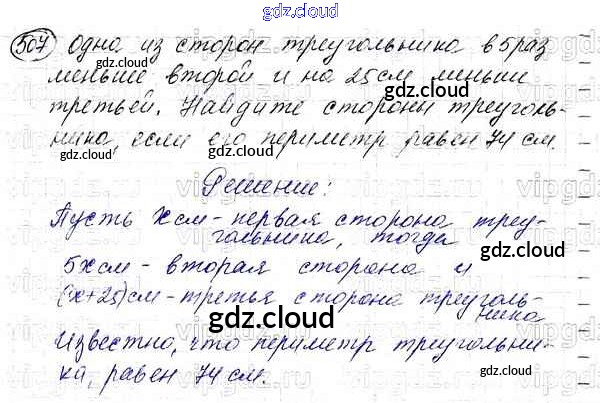 gdz.cloud
507 Одна из сторон треугольника в 5 раз
gdz.cloud gdz.cloud
меньше второй и на 25 см меньше
третьей. Найдите стороны треуголь-
ника, если его периметр равен 74 см.
gdz.cloud gdz.cloud
Решение:
Пусть x см - первая сторона треу-
гольника, тогда
gdz.cloud gdz.cloud
5x см - вторая сторона и
(x+25) см - третья сторона треуголь-
ника
gdz.cloud
Известно, что периметр треугольни-
ка, равен 74 см.
gdz.cloud gdz.cloud